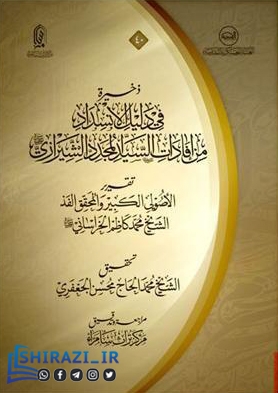 ٤٠
ذخيرة
في دليل الانسداد
من إفادات السيد المجدد الشيرازي
تقرير
الأصولي الكبير والمحقق الفذ
الشيخ محمد كاظم الخراساني
تحقيق
الشيخ محمد الحاج محسن الجعفري
مراجعة وتدقيق
مركز تراث سامراء
SHIRAZI_IR